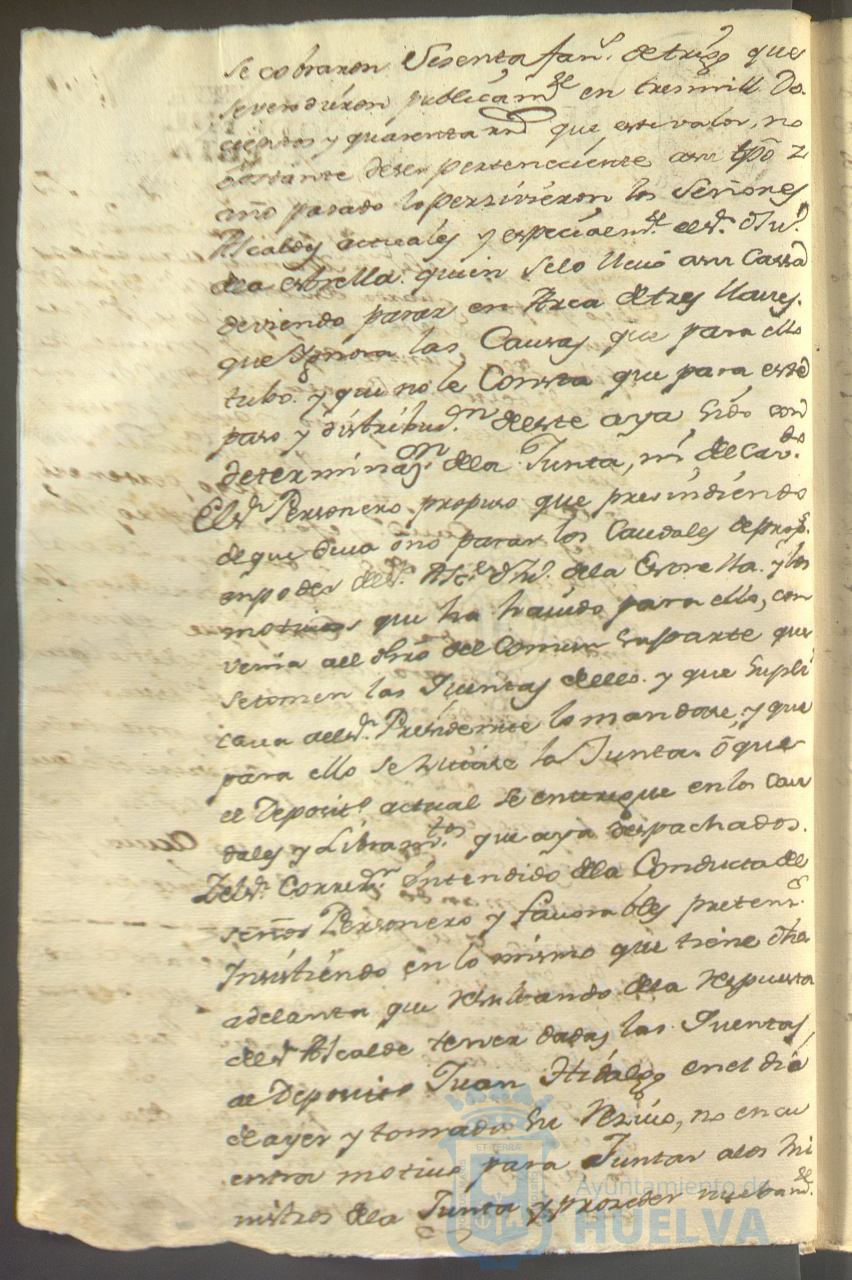 se cobraron Sesenta fan.s de trigo que
se vendieron publicam.te en tres mill Do.
cientos y quarenta r.s que este valor, no
obstante de ser perteneciente a su tpõ z
año pasado lo perzivieron los Señores
Alcaldes actuales y especialm.te el s.r Dn Ju.
de la estrella. quien se lo llevó a su Cassa
deviendo parar en Arca de tres llaves.
que Ygnora las Causas que para ello
tubo. y que no le Consta que para este
paso y distribuc.on de este aya sido con
determinaz.on de la Junta, ni de Cav.do
El s.r Personero propuso que presindiendo
de que deva o no parar los Caudales de prop.s
en poder del s.r Alc.e Dn Ju. de la Estrella. y los
motivos que ha havido para ello, con
venia al dro del Comun su parte que
se tomen las Quentas de ello. y que supli
cava al s.r Presidente lo mandase, y que
para ello se hiciese la Junta ó que
el Deposit.o actual se entregue en los cau
dales y Libram.tos que aya despachados.
Y el s.r Corred.r entendido de la Conducta del
señor Personero y favorables preten.s
Insistiendo en lo mismo que tiene dho
adelanta que resultando de la respuesta
del s.r Alcalde tener dadas las Quentas
de Deposito Juan Hidalgo en el dia
de ayer y tomado su Recivo, no encu
entra motivo para Juntar a los Mi
nistros de la Junta y proceder nuebam.te
Ayuntamiento de
HUELVA